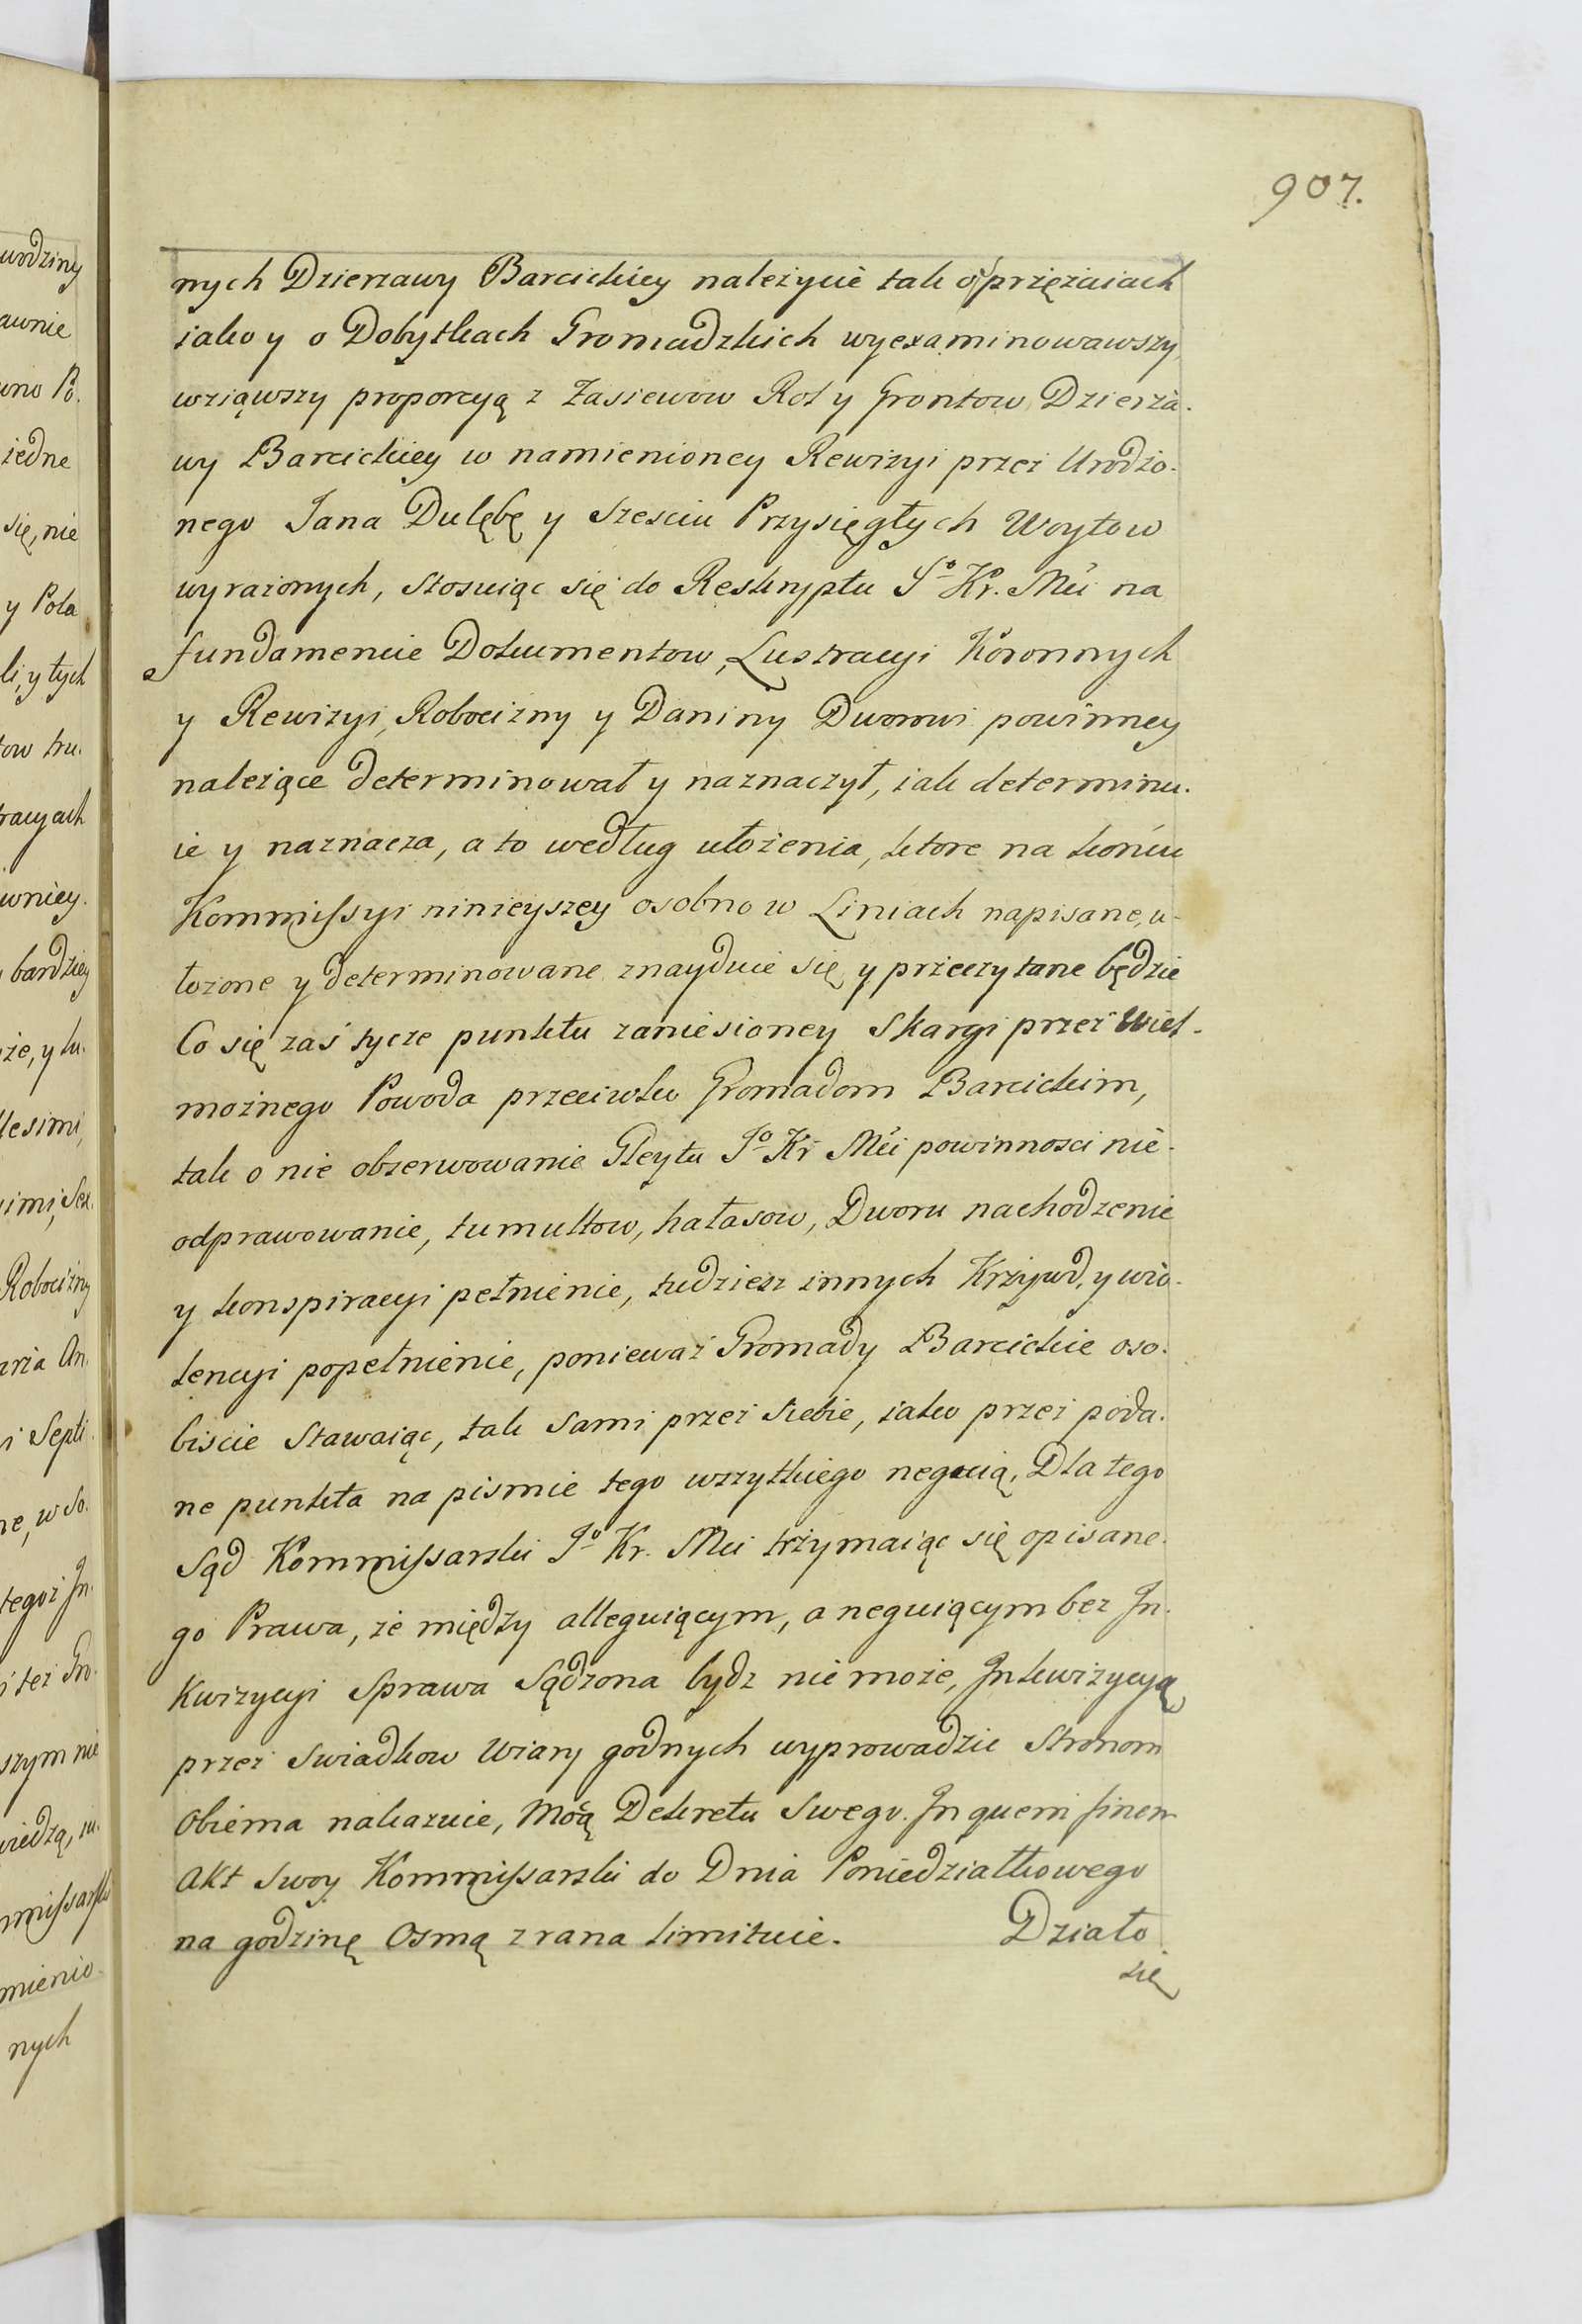 907.
nych Dzierzawy Barcickiey należycie tak o przężaiach
iako y o Dobytkach Gromadzkich wyexaminowawszy,
wziąwszy proporcyą z Zasiewow Rol y Grontow Dzierża-
wy Barcickiey w namienioney Rewizyi przez Urodzo-
nego Jana Dulębę y Szesciu Przysięgłych Woytow
wyrazonych, stosuiąc się do Reskryptu Jº Kr. Mci na
fundamencie Dokumentow, Lustracyi Koronnych
y Rewizyi, Robocizny y Daniny Dworowi powinney
należące determinował y naznaczył, iak determinu-
ie y naznacza, a to według ułożenia, ktore na końcu
Kommissyi ninieyszey osobno w Liniach napisane, u-
łozone y determinowane znayduie się y przeczytane będzie
Co się zaś tycze punktu zaniesioney Skargi przez Wiel-
możnego Powoda przeciwko Gromadom Barcickim,
tak o nie obserwowanie Gleytu Jº Kr Mci powinnosci nie-
odprawowanie, tumultow, hałasow, Dworu nachodzenie
y konspiracyi pełnienie, tudziesz innych Krzywd, y wio-
lencyi popełnienie, ponieważ Gromady Barcickie oso-
biscie Stawaiąc, tak sami przez siebie, iako przez poda-
ne punkta na pismie tego wszytkiego neguią, Dla tego
Sąd Kommissarski Jº Kr. Mci trzymaiąc się opisane-
go Prawa, że między alleguiącym, a neguiącym bez In-
kwizycyi Sprawa Sądzona bydz nie może, Inkwizycyą
przez Swiadkow Wiary godnych wyprowadzic Stronom
Obiema nakazuie, Mocą Dekretu Swego. In quem finem
Akt Swoy Kommissarski do Dnia Poniedziałkowego
na godzinę Osmą z rana limituie. Działo
się
wodziny
awnie
iedne
się, nie
y Pola
li, y tych
racyach
wniey.
bardziey
że, y ku-
Robocizny
aria An-
i Septi-
ne, w So-
tegoż In-
i też Gro-
szym nie
mmissarski
mienio-
nych